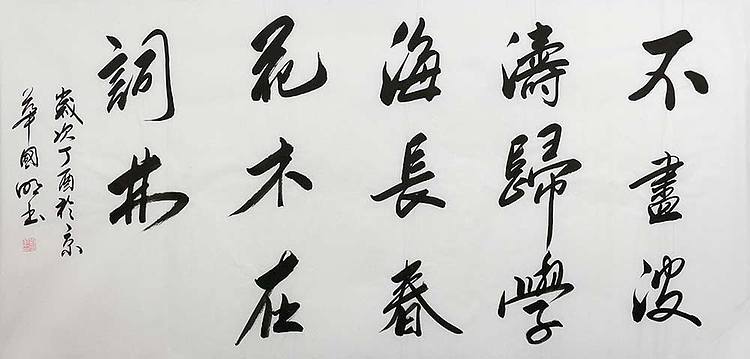 不盡波
濤歸學
海長春
花木在
詞林
歲次丁酉於京
華國明書